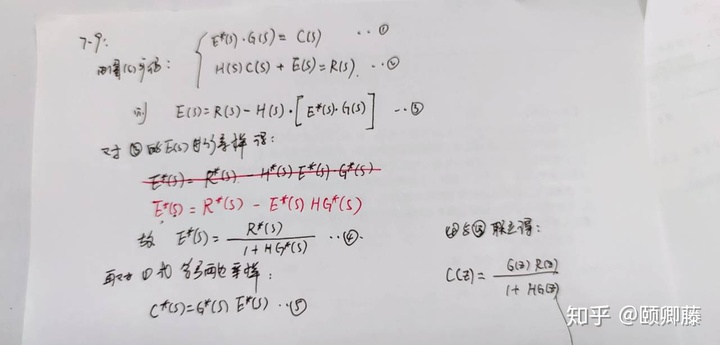 7-9:
由图(c)可得: { E*(s)·G(s) = C(s) ··①
H(s)C(s) + E(s) = R(s) ··②
则 E(s) = R(s) - H(s)·[E*(s)·G(s)] ··③
对③的E(s)进行采样得:
E*(s) = R*(s) - H*(s)E*(s)·G*(s)
E*(s) = R*(s) - E*(s)HG*(s)
故 E*(s) = R*(s) / (1 + HG*(s)) ··④
再对①式等号两边采样:
C*(s) = G*(s) E*(s) ··⑤
④与⑤联立得:
C(z) = G(z)R(z) / (1 + HG(z))
知乎 @颐卿藤